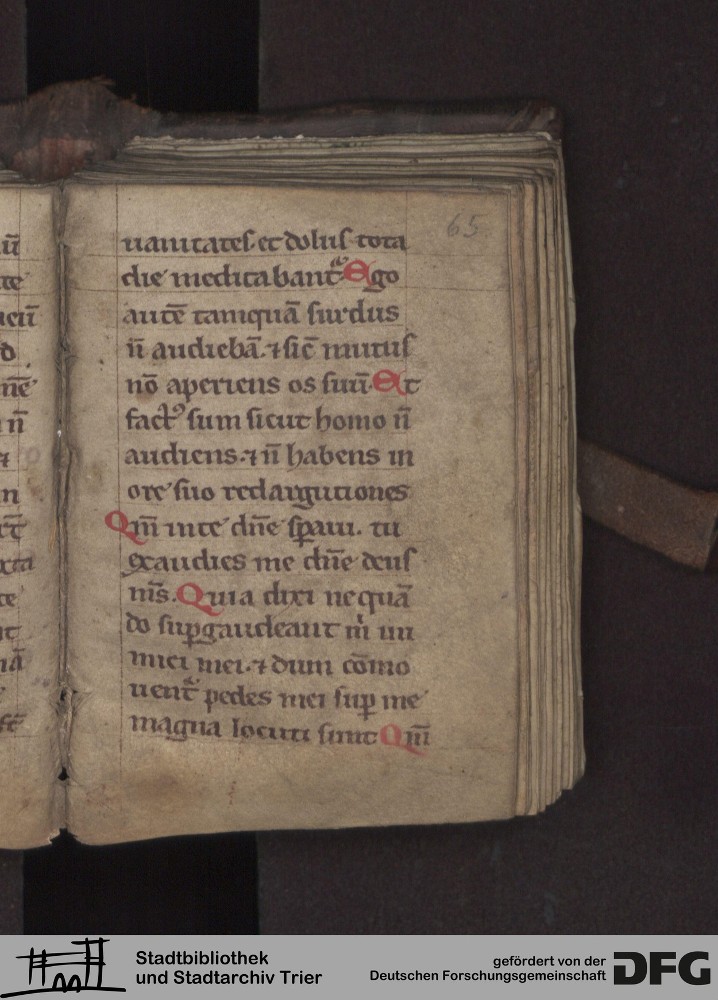 65
uanitates et dolus tota
die meditabant᷑ Ego
autē tamquā surdus
ñ audiebā. ⁊ sič mutus
nō aperiens os suū. Et
factꝰ sum sicut homo ñ
audiens. ⁊ ñ habens in
ore suo redargutiones
Qm̄ in te dn̄e sꝑaui. tu
exaudies me dn̄e deus
ms̄. Quia dixi nequā
do suꝑgaudeant m̍ ini
mici mei. ⁊ dum cōmo
uent᷑ pedes mei suꝑ me
magna locuti sunt Qm̄
Stadtbibliothek
und Stadtarchiv Trier
gefördert von der
Deutschen Forschungsgemeinschaft
DFG